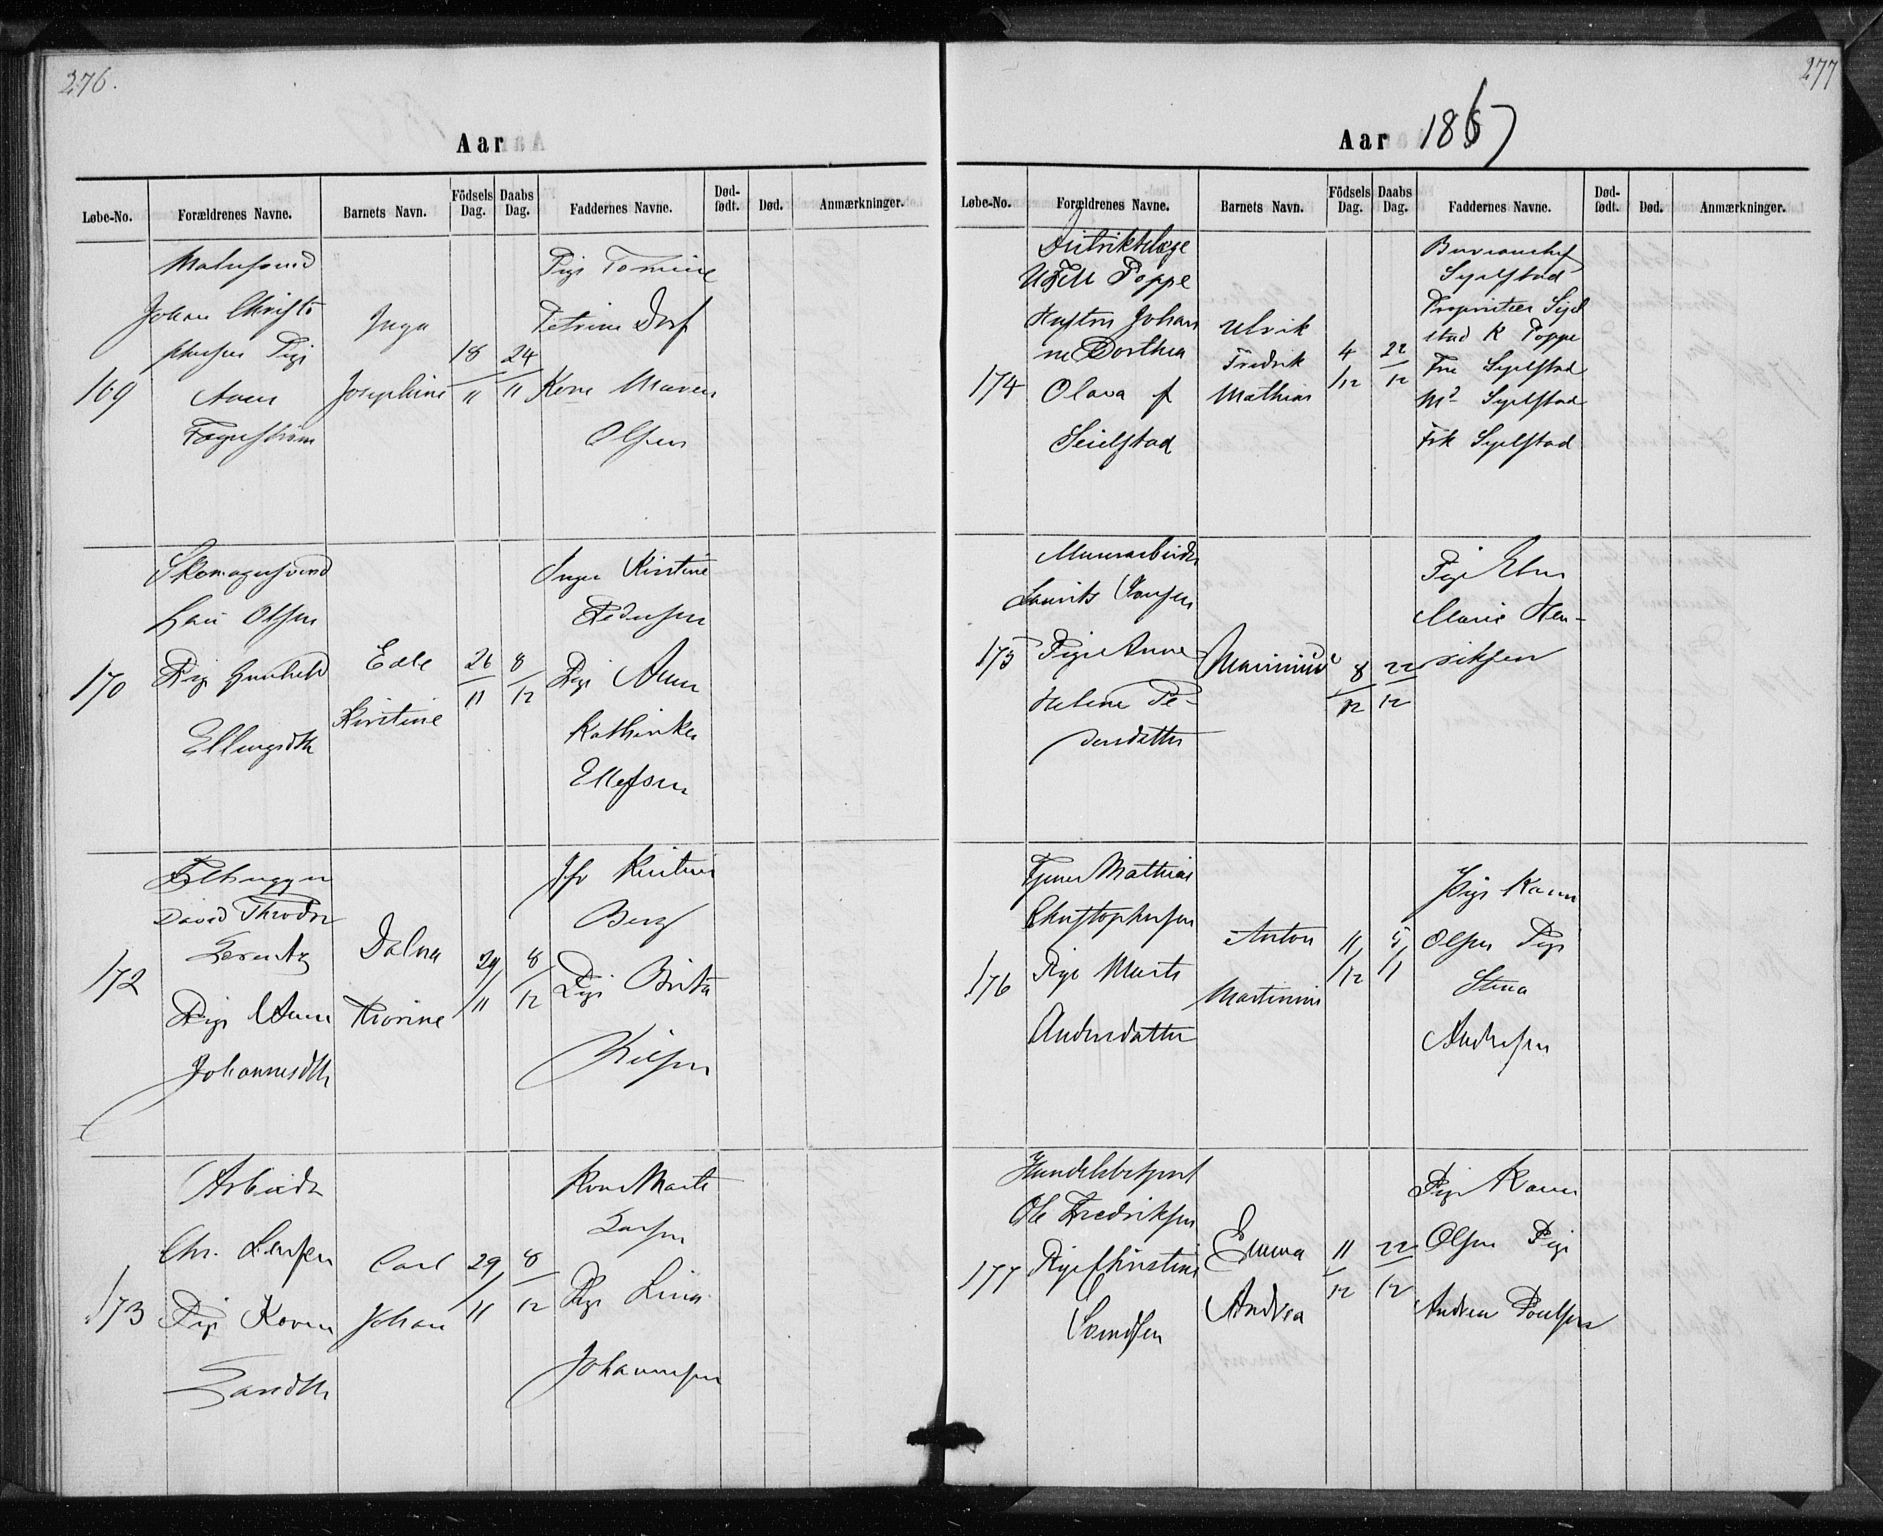 276.
Aar
Løbe-No. Forældrenes Navne. Barnets Navn. Födsels Dag. Daabs Dag. Faddernes Navne. Død-født. Død. Anmærkninger.
Malersvend
Johan Christo
phersen Pige
169
Fagerstrøm
Inga
Josephine
18/11 24/11
Pige Tomine
Petrine Dorf
Kone Maren
Olsen
Skomagersvend
Lars Olsen
170 Pige Gunhild
Ellingsdtr
Edle
Kirstine
26/11 8/12
Inger Kirstine
Pedersen
Pige Anne
Kathinka
Ellefsen
David Theodor
Lorentz
172 Pige Anne
Johannesdtr
Dalva
Thorine
29/11 8/12
Jfr Kirstine
Berg
Pige Brita
Nilsen
Arbeider
Chr. Larsen
173 Pige Karen
Larsdtr
Carl
Johan
29/11 8/12
Kone Marte
Larsen
Pige Lina
Johannesen
277
Aar 1867
Løbe-No. Forældrenes Navne. Barnets Navn. Födsels Dag. Daabs Dag. Faddernes Navne. Død-født. Død. Anmærkninger.
Distriktslæge
Poppe
Hustru Johan
ne Dorthea
174 Olava f
Seielstad
Ulrik
Fredrik
Mathias
4/12 22/12
Bureauchef
Syelstad
Proprietær Sjel
stad K Poppe
Fru Syelstad
Syelstad
Frk Syelstad
Murarbeider
Laurits Hansen
175 Pige Anne
Helene Pe-
dersdatter
8/12 22/12
Pige Elen
Marie Hen-
riksen
Tjener Mathias
Christophersen
176 Pige Marte
Andersdatter
Anton
Martinius
11/12 5/1
Pige Karen
Olsen Pige
Stina
Andersen
Handelsbetjent
Ole Fredriksen
177 Pige Christine
Svendsen
Emma
Andrea
11/12 22/12
Pige Karen
Olsen Pige
Andrea Poulsen